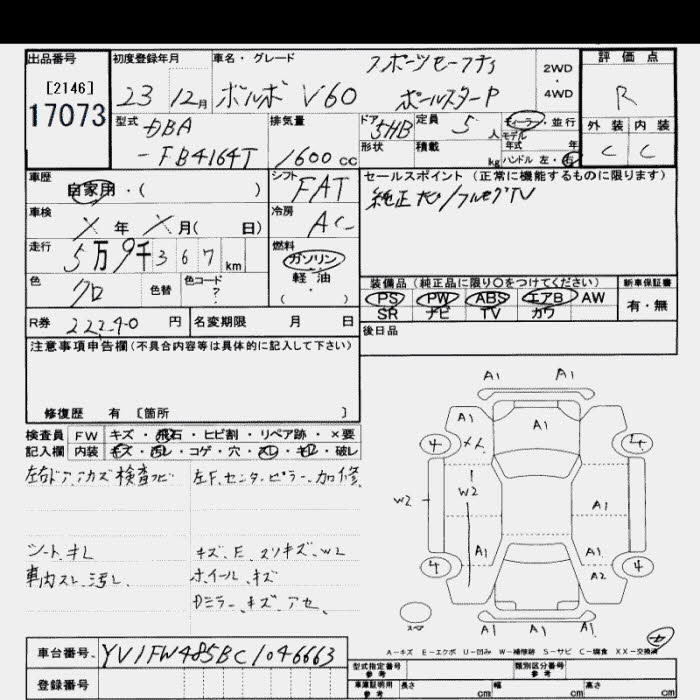 出品番号 初度登録年月 車名・グレード スポーツセーフティ 2WD 評価点
[2146] 23 12月 ボルボ V60 ポールスターP 4WD R
17073 型式 DBA 排気量 ドア 5HB 定員 5人 ディーラー・並行 外装 内装
-FB4164T 1600cc 形状 積載 kg モデル年式 年 C C
ハンドル 左・右
車歴 自家用・( ) シフト FAT セールスポイント (正常に機能するものに限ります)
車検 年 月( 日) 冷房 AC 純正ナビ/フルセグTV
走行 5万9千367km 燃料 ガソリン
軽油
・( )
色 クロ 色替 色コード ? 装備品 (純正品に限り○をつけてください) 新車保証書
PS PW ABS エアB AW 有・無
SR ナビ TV カワ
R券 円 名変期限 月 日 後日品
注意事項申告欄(不具合内容等は具体的に記入して下さい)
修復歴 有 [箇所 ]
検査員 FW キズ・飛石・ヒビ割・リペア跡・×要
記入欄 内装 キズ・汚レ・コゲ・穴・スレ・キレ・破レ
左F.センターピラー.加修
シート.キレ キズ、E、スリキズ、W2
車内スレ、汚レ ホイール.キズ
Dミラー、キズ、アセ
A1 A1
A1 A1
4 4
W2 W2 A1
A1 A1
4 A2 4
A1 A1 A1
A-キズ E-エクボ U-凹み W-補修跡 S-サビ C-腐食 XX-交換済
車台番号 YV1FW485BC1046663
登録番号
型式指定番号 参考 類別区分番号 参考
車庫証明用 参考 長さ cm 幅 cm 高さ cm